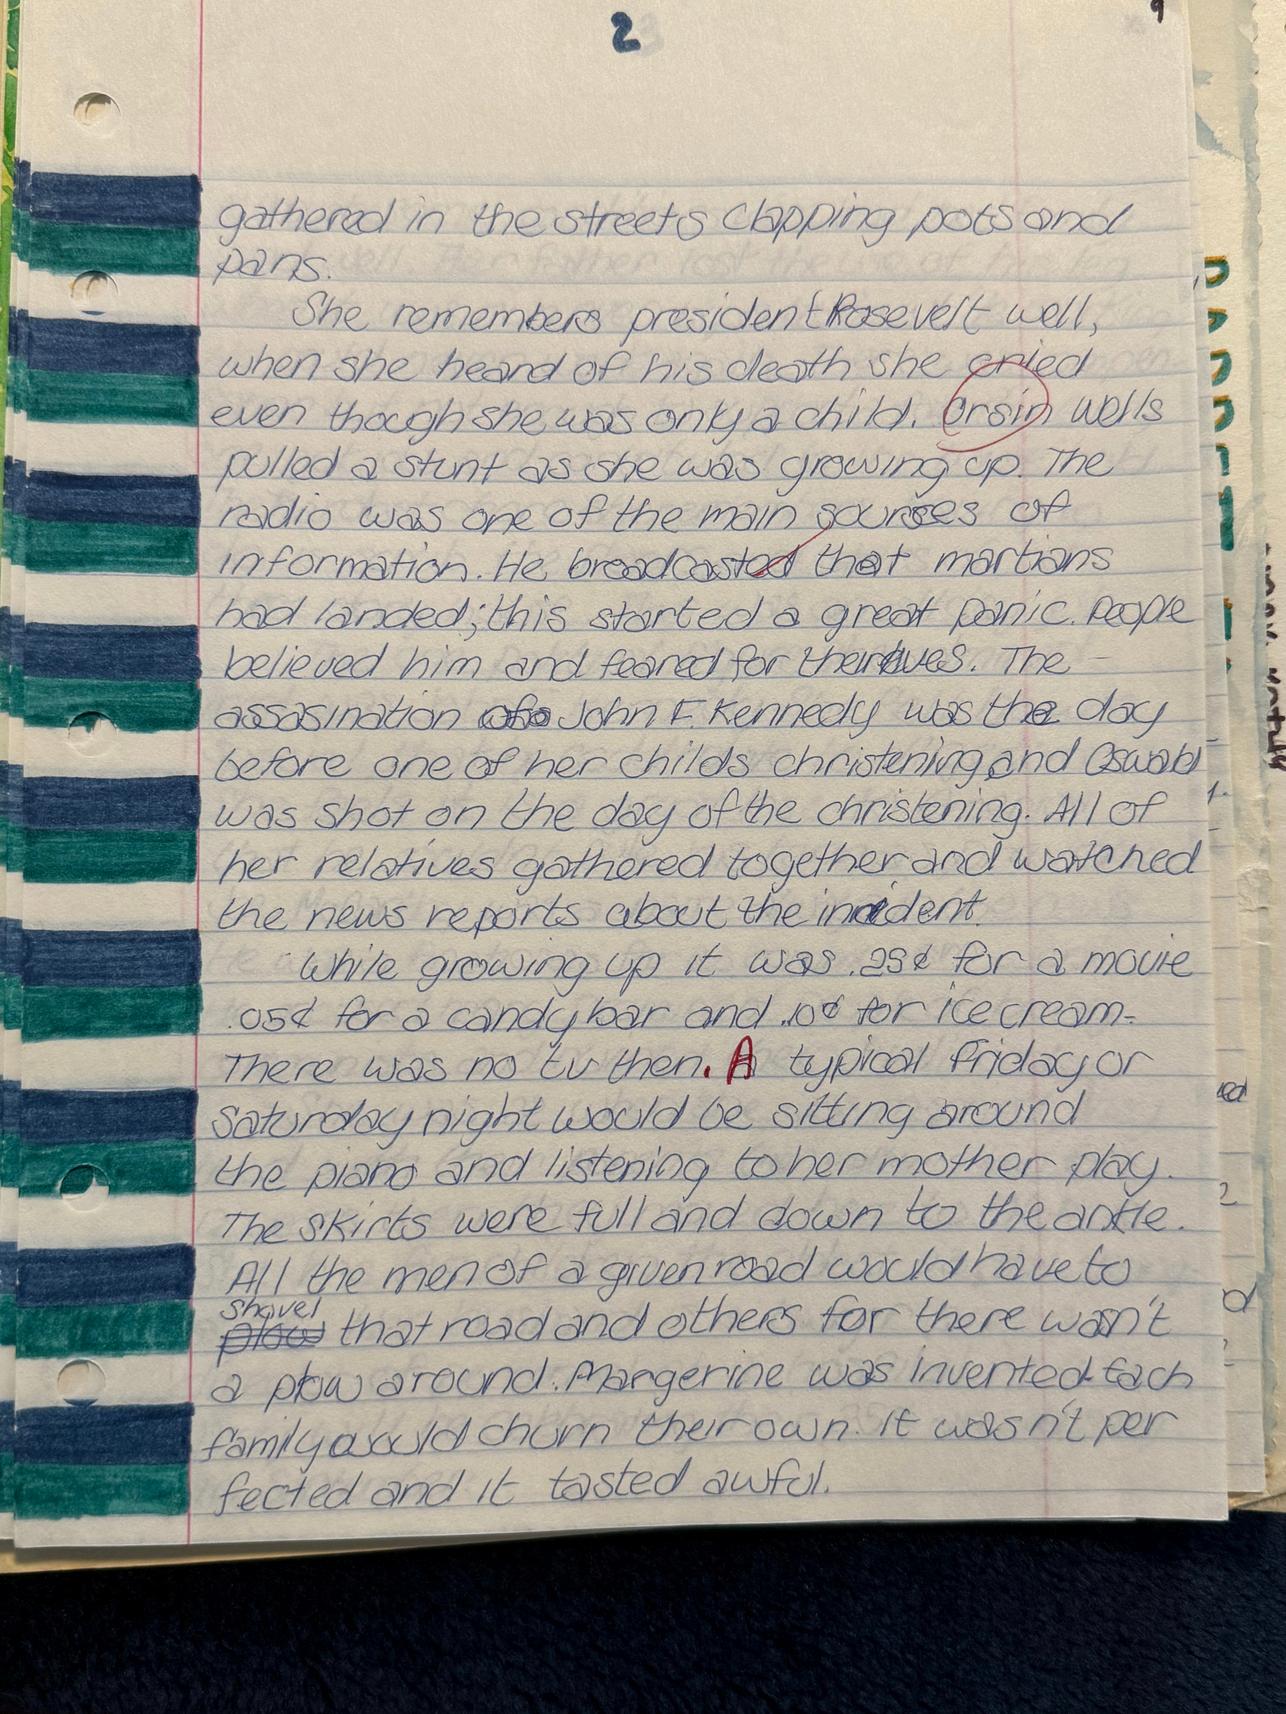 2
9
gathered in the streets clapping pots and
pans.
She remembers president Rosevelt well,
when she heard of his death she cried
even though she was only a child. Orsin Wells
pulled a stunt as she was growing up. The
radio was one of the main sources of
information. He broadcasted that martians
had landed; this started a great panic. People
believed him and feared for their lives. The
assasination of John F. Kennedy was the day
before one of her childs christening and Oswald
was shot on the day of the christening. All of
her relatives gathered together and watched
the news reports about the incident.
While growing up it was .25¢ for a movie
.05¢ for a candy bar and .10¢ for ice cream.
There was no tv then. A typical Friday or
Saturday night would be sitting around
the piano and listening to her mother play.
The skirts were full and down to the ankle.
All the men of a given road would have to
shovel
plow that road and others for there wasn't
a plow around. Margerine was invented. Each
family would churn their own. It wasn't per
fected and it tasted awful.